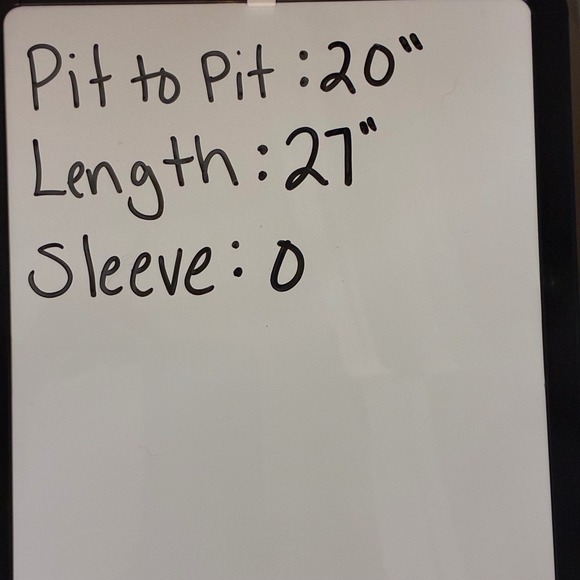 Pit to Pit : 20"
Length : 27"
Sleeve : 0